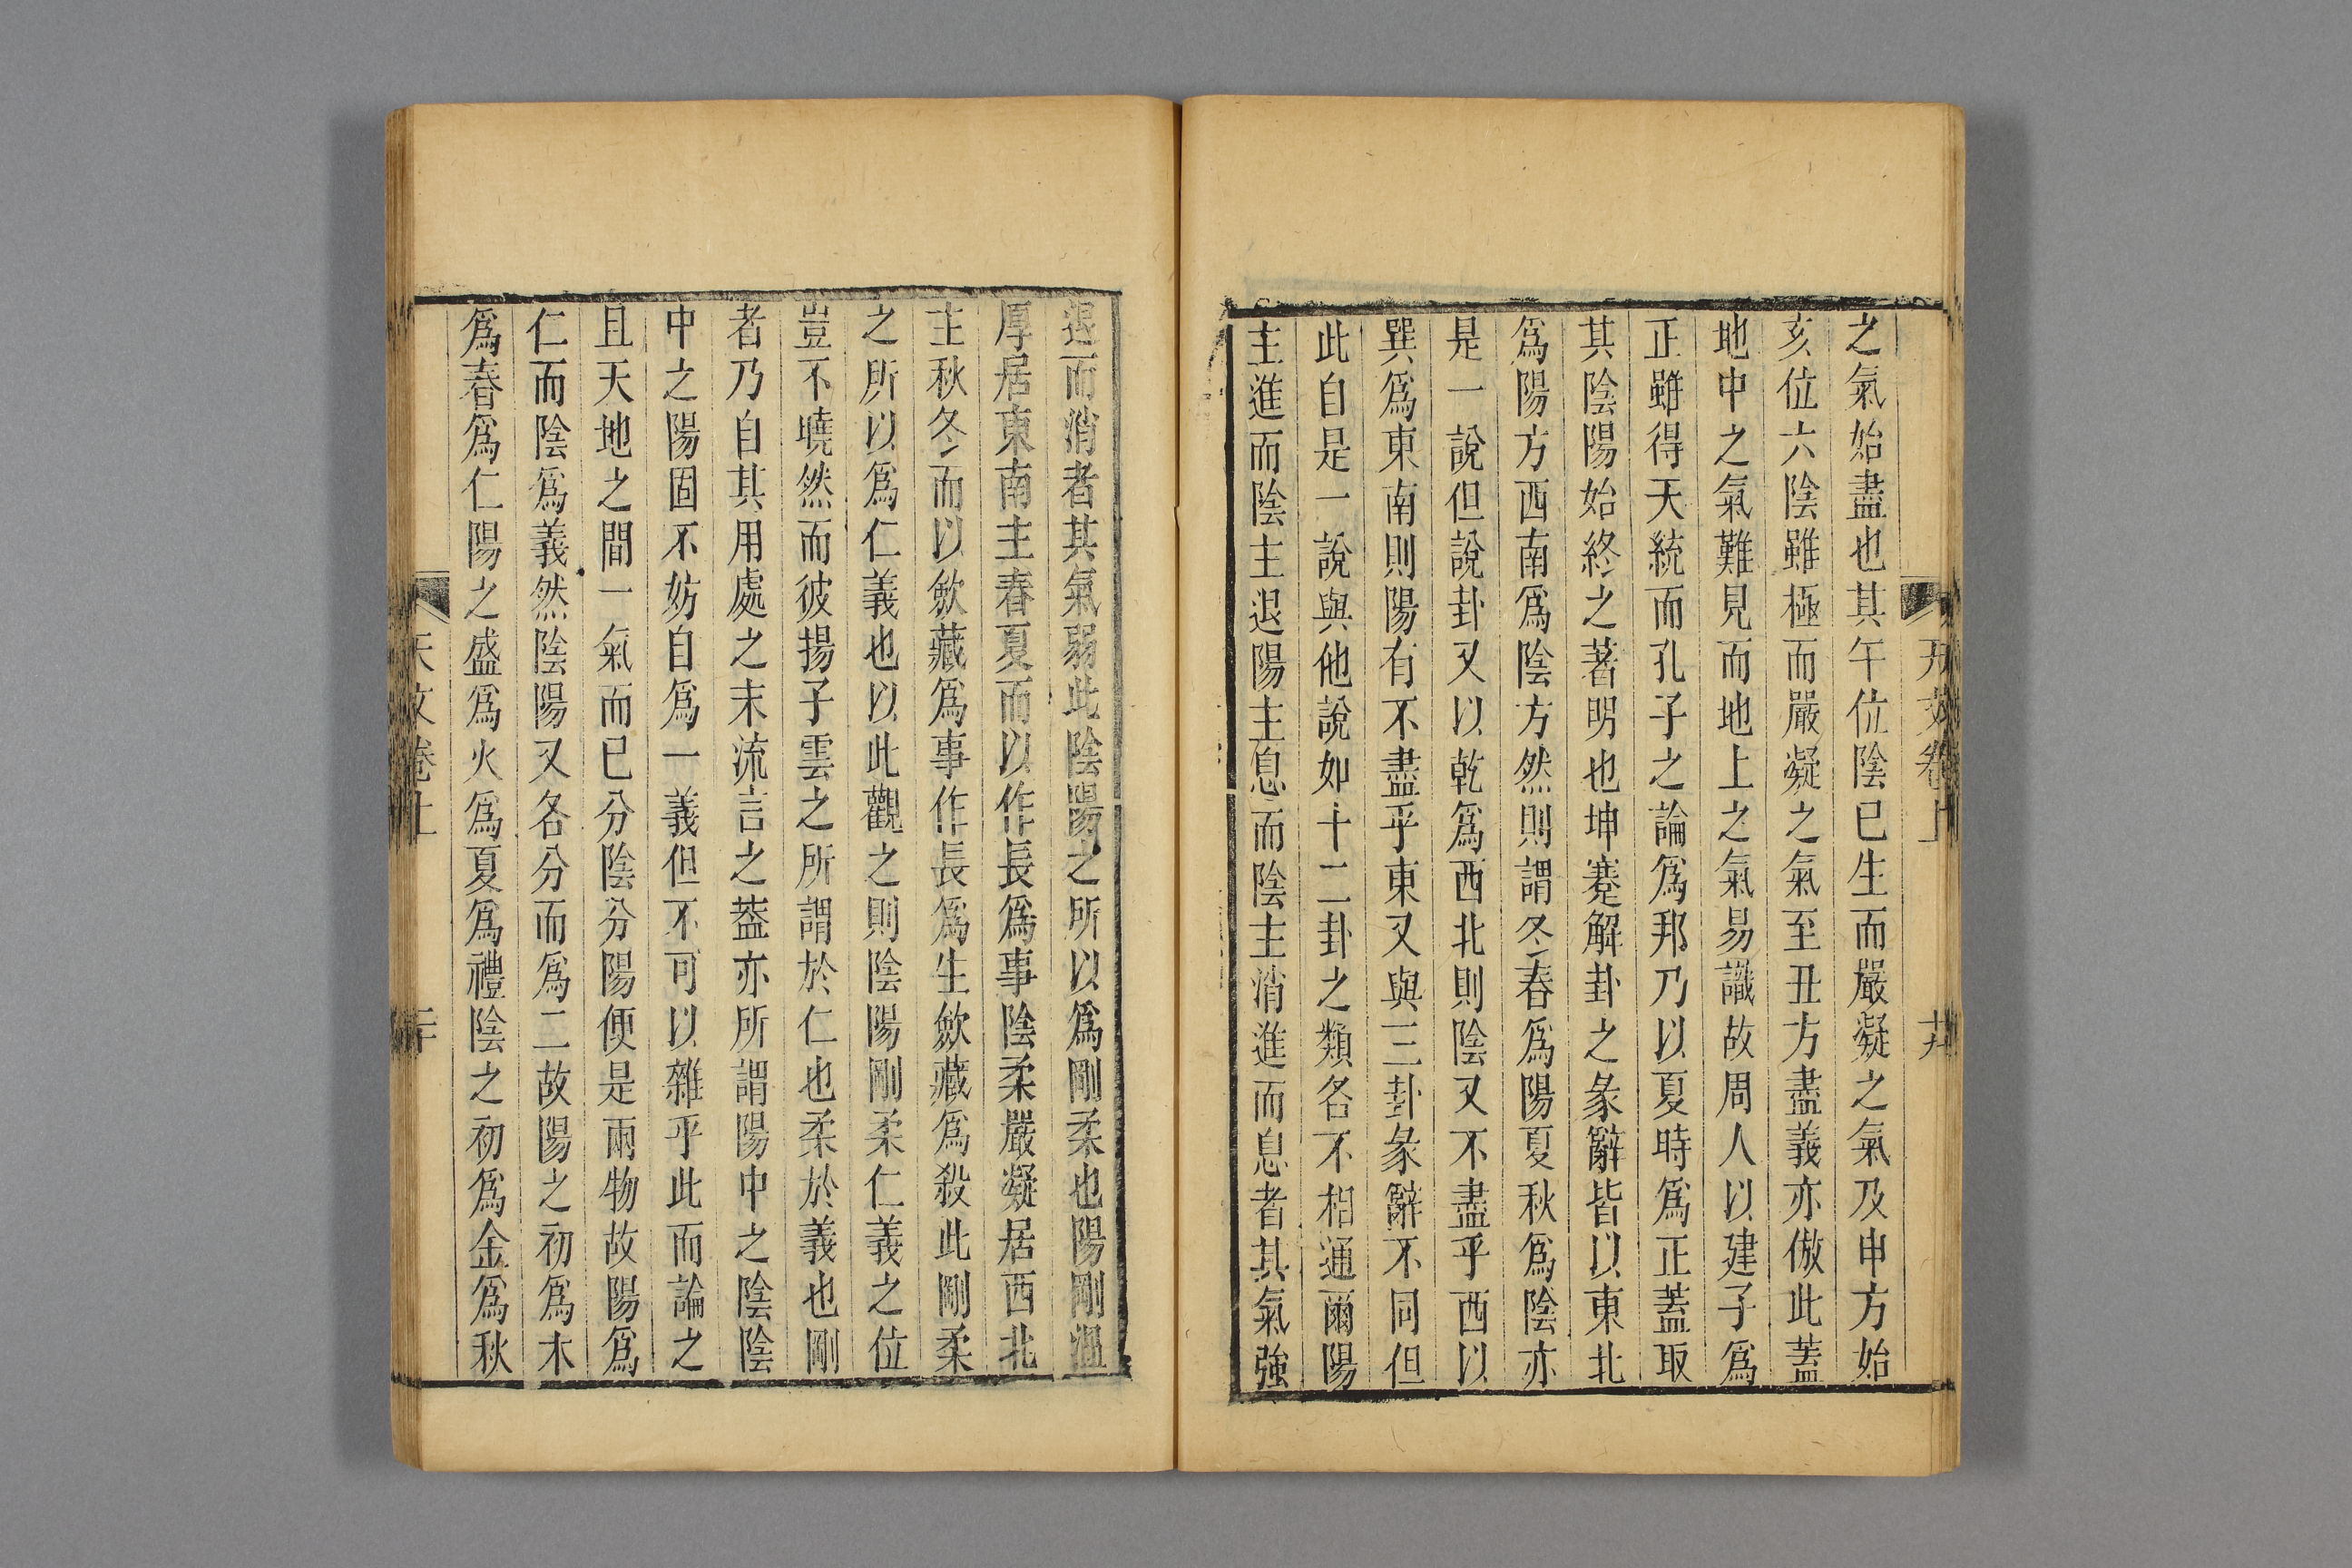 之氣始盡也其午位陰已生而嚴凝之氣及申方始
亥位六陰雖極而嚴凝之氣至丑方盡義亦倣此蓋
地中之氣難見而地上之氣易識故周人以建子爲
正雖得天統而孔子之論爲邦乃以夏時爲正蓋取
其陰陽始終之著明也坤蹇解卦之彖辭皆以東北
爲陽方西南爲陰方然則謂冬春爲陽夏秋爲陰亦
是一說但說卦又以乾爲西北則陰又不盡乎西以
巽爲東南則陽有不盡乎東又與三卦彖辭不同但
此自是一說與他說如十二卦之類各不相通爾陽
主進而陰主退陽主息而陰主消進而息者其氣強
天文卷上
退而消者其氣弱此陰陽之所以爲剛柔也陽剛溫
厚居東南主春夏而以作長爲事陰柔嚴凝居西北
主秋冬而以斂藏爲事作長爲生斂藏爲殺此剛柔
之所以爲仁義也以此觀之則陰陽剛柔仁義之位
豈不曉然而彼揚子雲之所謂於仁也柔於義也剛
者乃自其用處之末流言之葢亦所謂陽中之陰陰
中之陽固不妨自爲一義但不可以雜乎此而論之
且天地之間一氣而已分陰分陽便是兩物故陽爲
仁而陰爲義然陰陽又各分而爲二故陽之初爲木
爲春爲仁陽之盛爲火爲夏爲禮陰之初爲金爲秋
天文卷上